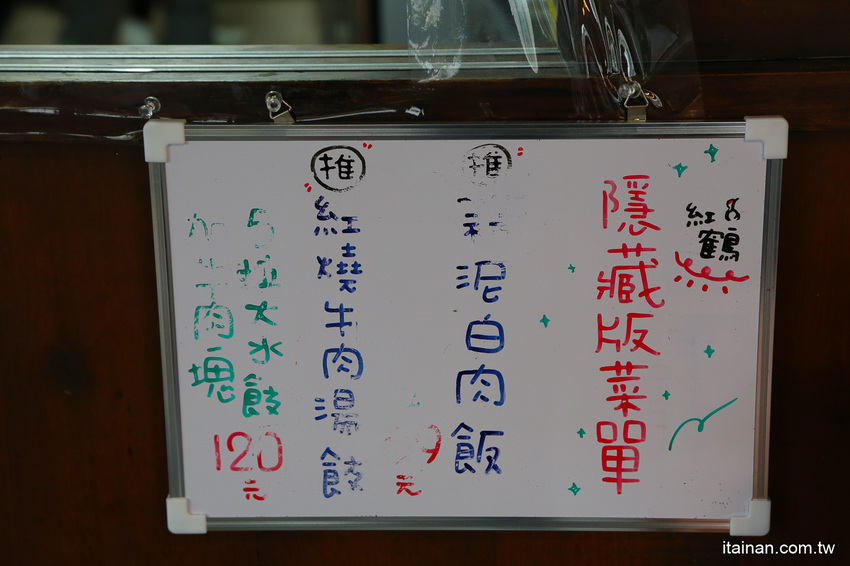 紅鶴
隱藏版菜單
推
泥白肉飯
9
元
推
紅燒牛肉湯餃
5粒大水餃
加牛肉塊
120
元
itainan.com.tw